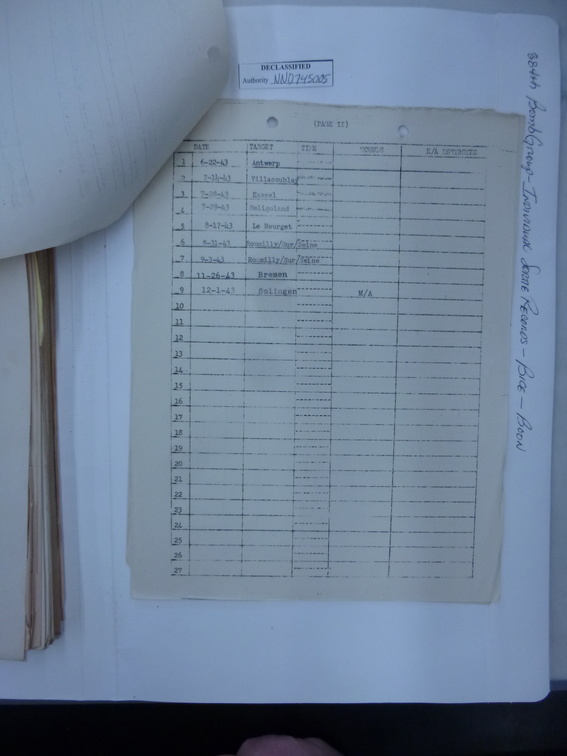 DECLASSIFIED
Authority NND745005
384th Bomb Group - Individual Sortie Records - Bice - Boon
(PAGE II)
DATE TARGET TIME E/A
1 6-22-43 Antwerp
2 7-14-43 Villacoublay
3 7-28-43 Kassel
4 7-29-43 Heligoland
5 8-17-43 Le Bourget
6 8-31-43 Romilly/Sur/Seine
7 9-3-43 Romilly/Sur/Seine
8 11-26-43 Bremen
9 12-1-43 Solingen M/A
10
11
12
13
14
15
16
17
18
19
20
21
22
23
24
25
26
27